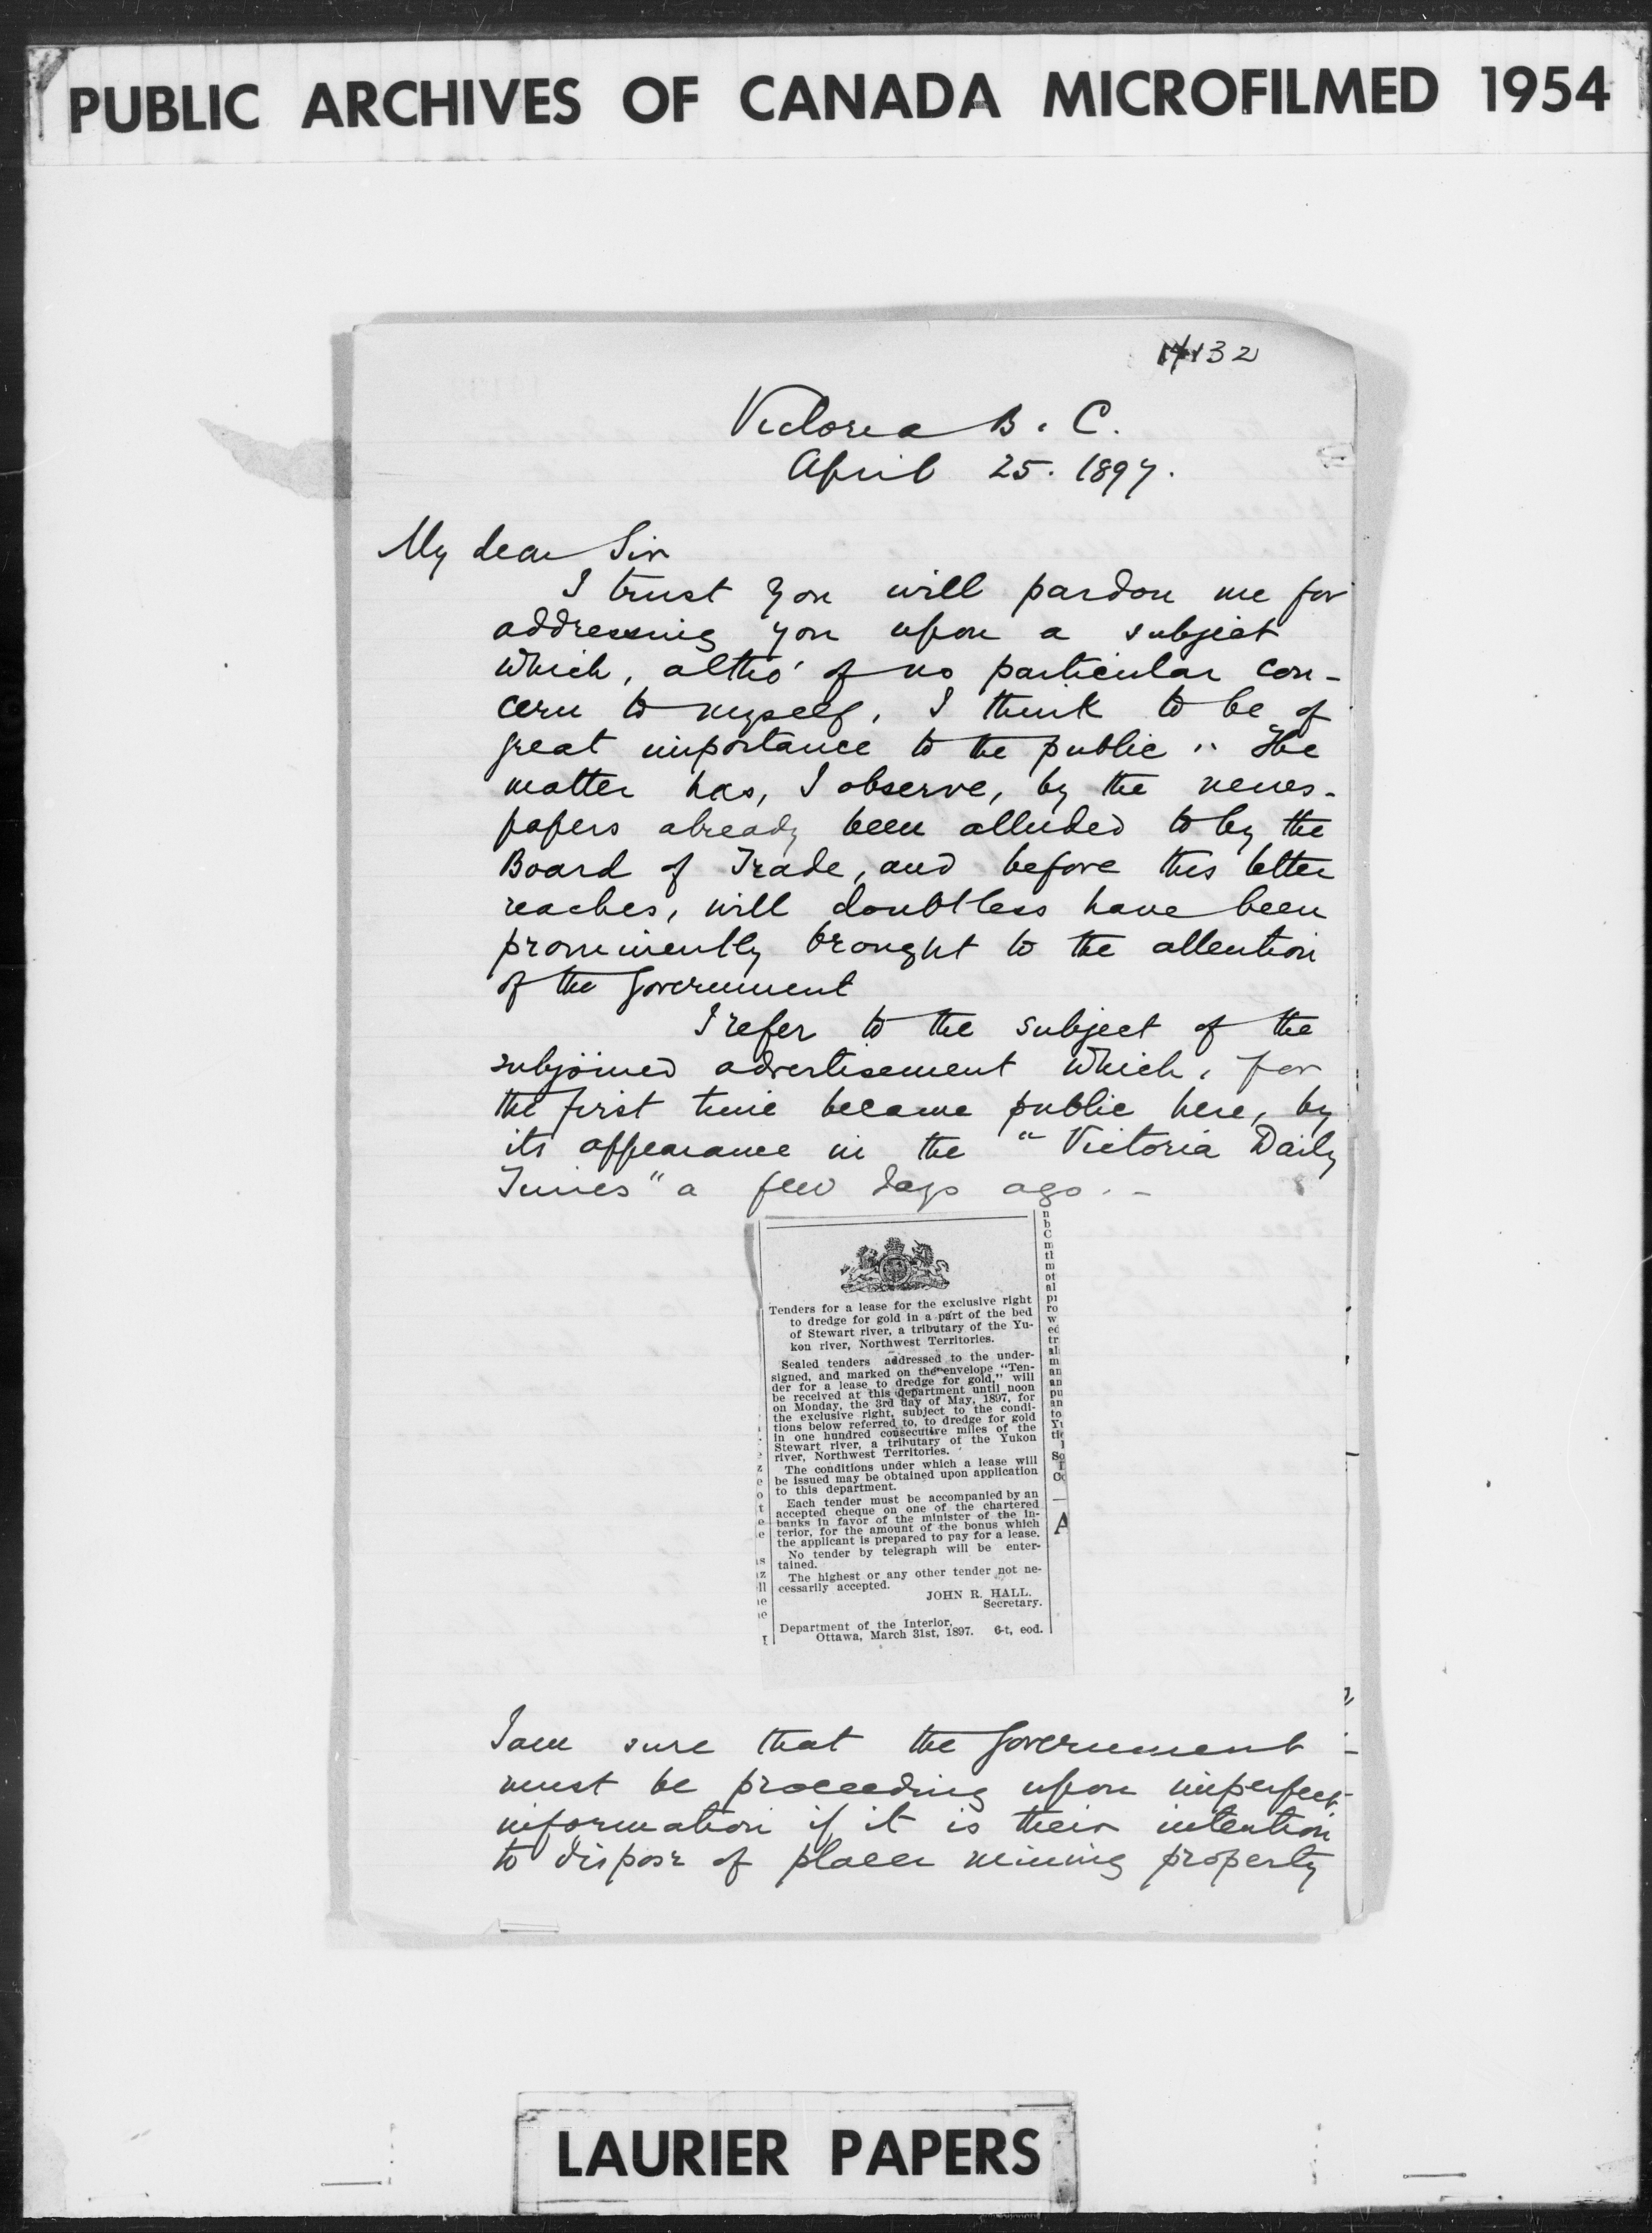 PUBLIC ARCHIVES OF CANADA MICROFILMED 1954
14132
Victoria B. C.
April 25. 1897.
My dear Sir
I trust you will pardon me for
addressing you upon a subject
which, altho' of no particular con-
cern to myself, I think to be of
great importance to the public. The
matter has, I observe, by the news-
papers already been alluded to by the
Board of Trade, and before this letter
reaches, will doubtless have been
prominently brought to the attention
of the Government
I refer to the subject of the
subjoined advertisement which, for
the first time became public here, by
its appearance in the "Victoria Daily
Times" a few days ago. -
Tenders for a lease for the exclusive right
to dredge for gold in a part of the bed
of Stewart river, a tributary of the Yu-
kon river, Northwest Territories.
Sealed tenders addressed to the under-
signed, and marked on the envelope "Ten-
der for a lease to dredge for gold," will
be received at this department until noon
on Monday, the 3rd day of May, 1897, for
the exclusive right, subject to the condi-
tions below referred to, to dredge for gold
in one hundred consecutive miles of the
Stewart river, a tributary of the Yukon
river, Northwest Territories.
The conditions under which a lease will
be issued may be obtained upon application
to this department.
Each tender must be accompanied by an
accepted cheque on one of the chartered
banks in favor of the minister of the in-
terior, for the amount of the bonus which
the applicant is prepared to pay for a lease.
No tender by telegraph will be enter-
tained.
The highest or any other tender not ne-
cessarily accepted.
JOHN R. HALL.
Secretary.
Department of the Interior,
Ottawa, March 31st, 1897. 6-t, eod.
I am sure that the Government
must be proceeding upon imperfect
information if it is their intention
to dispose of placer mining property
LAURIER PAPERS